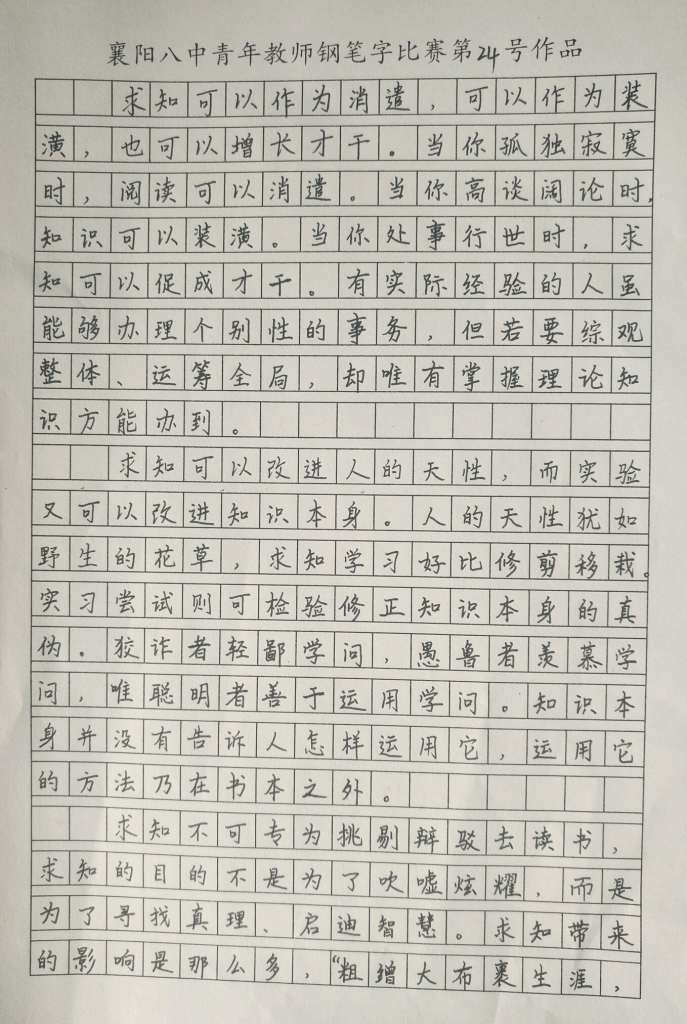 襄阳八中青年教师钢笔字比赛第24号作品
求知可以作为消遣，可以作为装
潢，也可以增长才干。当你孤独寂寞
时，阅读可以消遣。当你高谈阔论时，
知识可以装潢。当你处事行世时，求
知可以促成才干。有实际经验的人虽
能够办理个别性的事务，但若要综观
整体、运筹全局，却唯有掌握理论知
识方能办到。
求知可以改进人的天性，而实验
又可以改进知识本身。人的天性犹如
野生的花草，求知学习好比修剪移栽。
实习尝试则可检验修正知识本身的真
伪。狡诈者轻鄙学问，愚鲁者羡慕学
问，唯聪明者善于运用学问。知识本
身并没有告诉人怎样运用它，运用它
的方法乃在书本之外。
求知不可专为挑剔辩驳去读书，
求知的目的不是为了吹嘘炫耀，而是
为了寻找真理、启迪智慧。求知带来
的影响是那么多，“粗缯大布裹生涯，